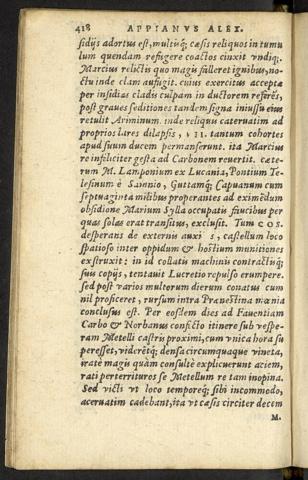 418 APPIANVS ALEX.
sidijs adortus est, multisq́; cæsis reliquos in tumu
lum quendam refugere coactos cinxit vndiq;.
Marcius relictis quo magis falleret ignibus, no-
ctu inde clam aufugit. cuius exercitus acceptæ
per insidias cladis culpam in ductorem referẽs,
post graues seditiones tandem signa iniussu eius
retulit Ariminum. inde reliquis cateruatim ad
proprios lares dilapsis, VII. tantum cohortes
apud suum ducem permanserunt. ita Marcius
re infeliciter gesta ad Carbonem reuertit. cæte-
rum M. Lamponium ex Lucania, Pontium Te-
lesinum è Samnio, Guttamq́; Capuanum cum
septuaginta milibus properantes ad eximẽdum
obsidione Marium Sylla occupatis faucibus per
quas solas erat transitus, exclusit. Tum COS.
desperans de externis auxiliis, castellum loco
spatioso inter oppidum & hostium munitiones
exstruxit: in id collatis machinis contractisq́;
suis copijs, tentauit Lucretio repulso erumpere.
sed post varios multorum dierum conatus cum
nil proficeret, rursum intra Prænestina mœnia
conclusus est. Per eosdem dies ad Fauentiam
Carbo & Norbanus confecto itinere sub vespe-
ram Metelli castris proximi, cum vnica hora su
peresset, viderẽtq́; densa circumquaque vineta,
iratè magis quàm consultè explicuerunt aciem,
rati perterrituros se Metellum re tam inopina.
Sed victi vt loco temporeq́; sibi incommodo,
aceruatim cadebant, ita vt cæsis circiter decem
M.